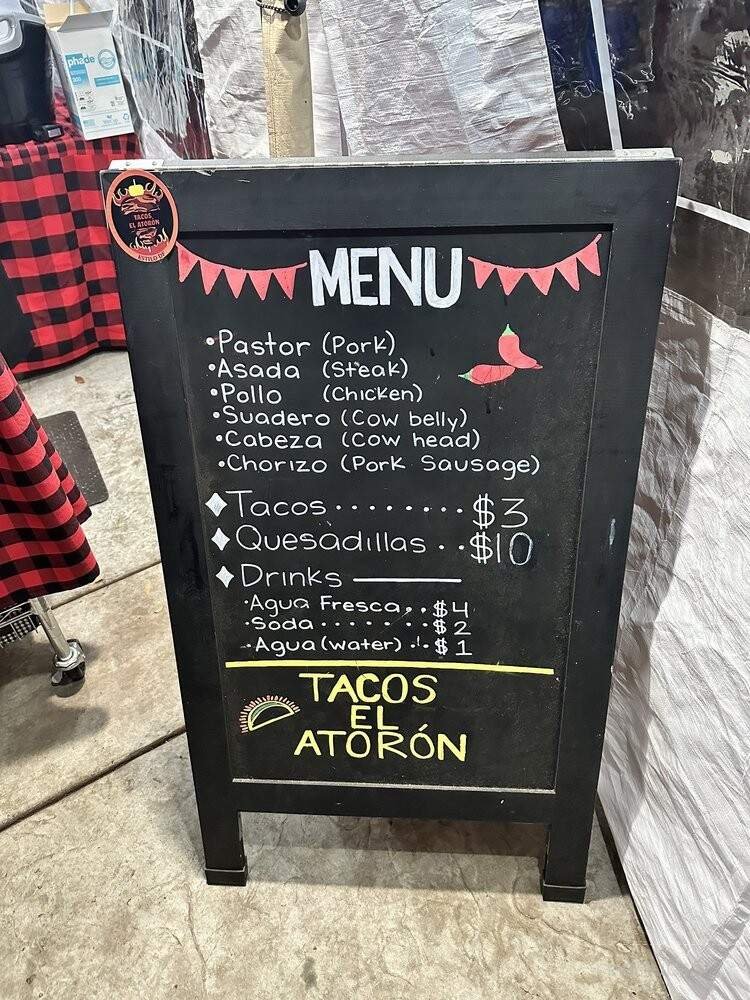 phade
TACOS
EL ATORÓN
ESTILO DF
MENU
•Pastor (Pork)
•Asada (Steak)
•Pollo (Chicken)
•Suadero (Cow belly)
•Cabeza (Cow head)
•Chorizo (Pork Sausage)
♦Tacos........$3
♦Quesadillas..$10
♦Drinks
·Agua Fresca..$4
·Soda.......$2
·Agua (water)..$1
TACOS
EL
ATORÓN